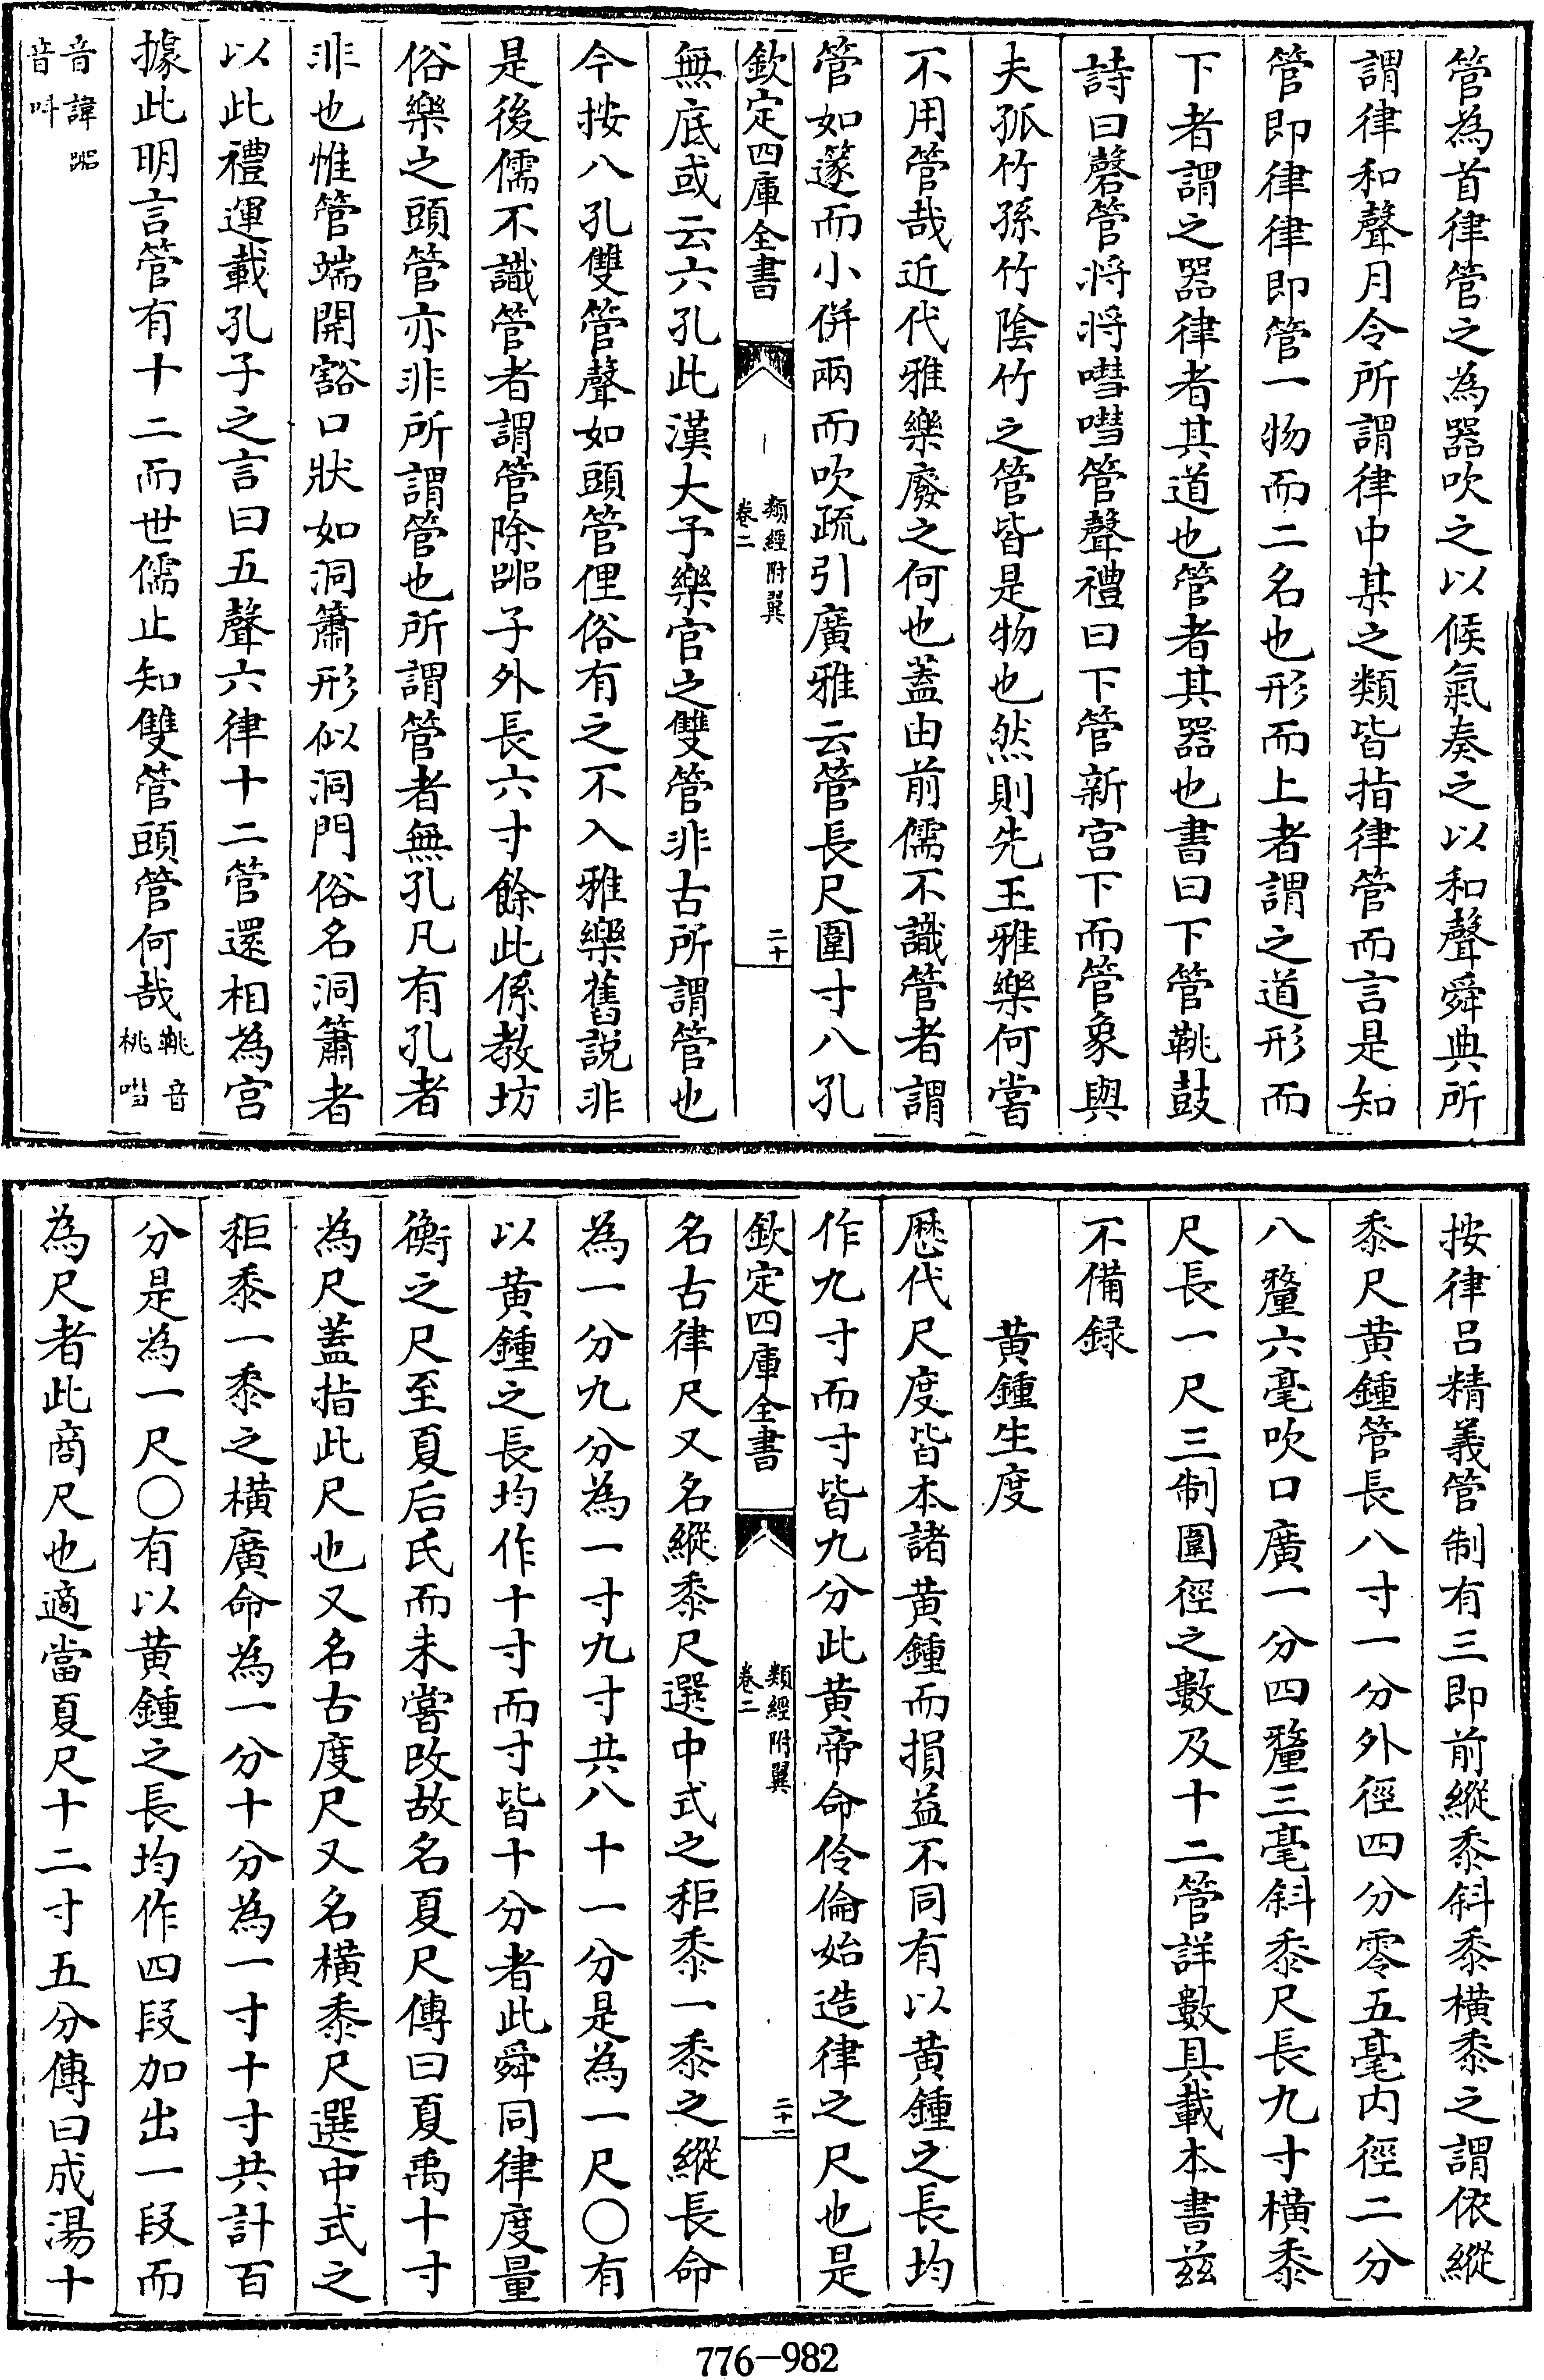 管為首律管之為器吹之以候氣奏之以和聲舜典所
謂律和聲月令所謂律中某之類皆指律管而言是知
管即律律即管一物而二名也形而上者謂之道形而
下者謂之器律者其道也管者其器也書曰下管鞉鼓
詩曰磬管將將嘒嘒管聲禮曰下管新宫下而管象與
夫孤竹孫竹隂竹之管皆是物也然則先王雅樂何嘗
不用管哉近代雅樂廢之何也蓋由前儒不識管者謂
管如篴而小併兩而吹疏引廣雅云管長尺圍寸八孔
欽定四庫全書
類經附翼
卷二
二十
無底或云六孔此漢大予樂官之雙管非古所謂管也
今按八孔雙管聲如頭管俚俗有之不入雅樂舊説非
是後儒不識管者謂管除𠾅子外長六寸餘此係教坊
俗樂之頭管亦非所謂管也所謂管者無孔凡有孔者
非也惟管端開豁口狀如洞簫形似洞門俗名洞簫者
以此禮運載孔子之言曰五聲六律十二管還相為宫
據此明言管有十二而世儒止知雙管頭管何哉鞉音桃嘒
音諱𠾅音叫
按律吕精義管制有三即前縱黍斜黍横黍之謂依縱
黍尺黄鍾管長八寸一分外徑四分零五毫内徑二分
八釐六毫吹口廣一分四釐三毫斜黍尺長九寸横黍
尺長一尺三制圍徑之數及十二管詳數具載本書兹
不備録
黄鍾生度
歴代尺度皆本諸黄鍾而損益不同有以黄鍾之長均
作九寸而寸皆九分此黄帝命伶倫始造律之尺也是
欽定四庫全書
類經附翼
卷二
二十一
名古律尺又名縱黍尺選中式之秬黍一黍之縱長命
為一分九分為一寸九寸共八十一分是為一尺〇有
以黄鍾之長均作十寸而寸皆十分者此舜同律度量
衡之尺至夏后氏而未嘗改故名夏尺傳曰夏禹十寸
為尺蓋指此尺也又名古度尺又名横黍尺選中式之
秬黍一黍之横廣命為一分十分為一寸十寸共計百
分是為一尺〇有以黄鍾之長均作四段加出一段而
為尺者此商尺也適當夏尺十二寸五分傳曰成湯十
776-982